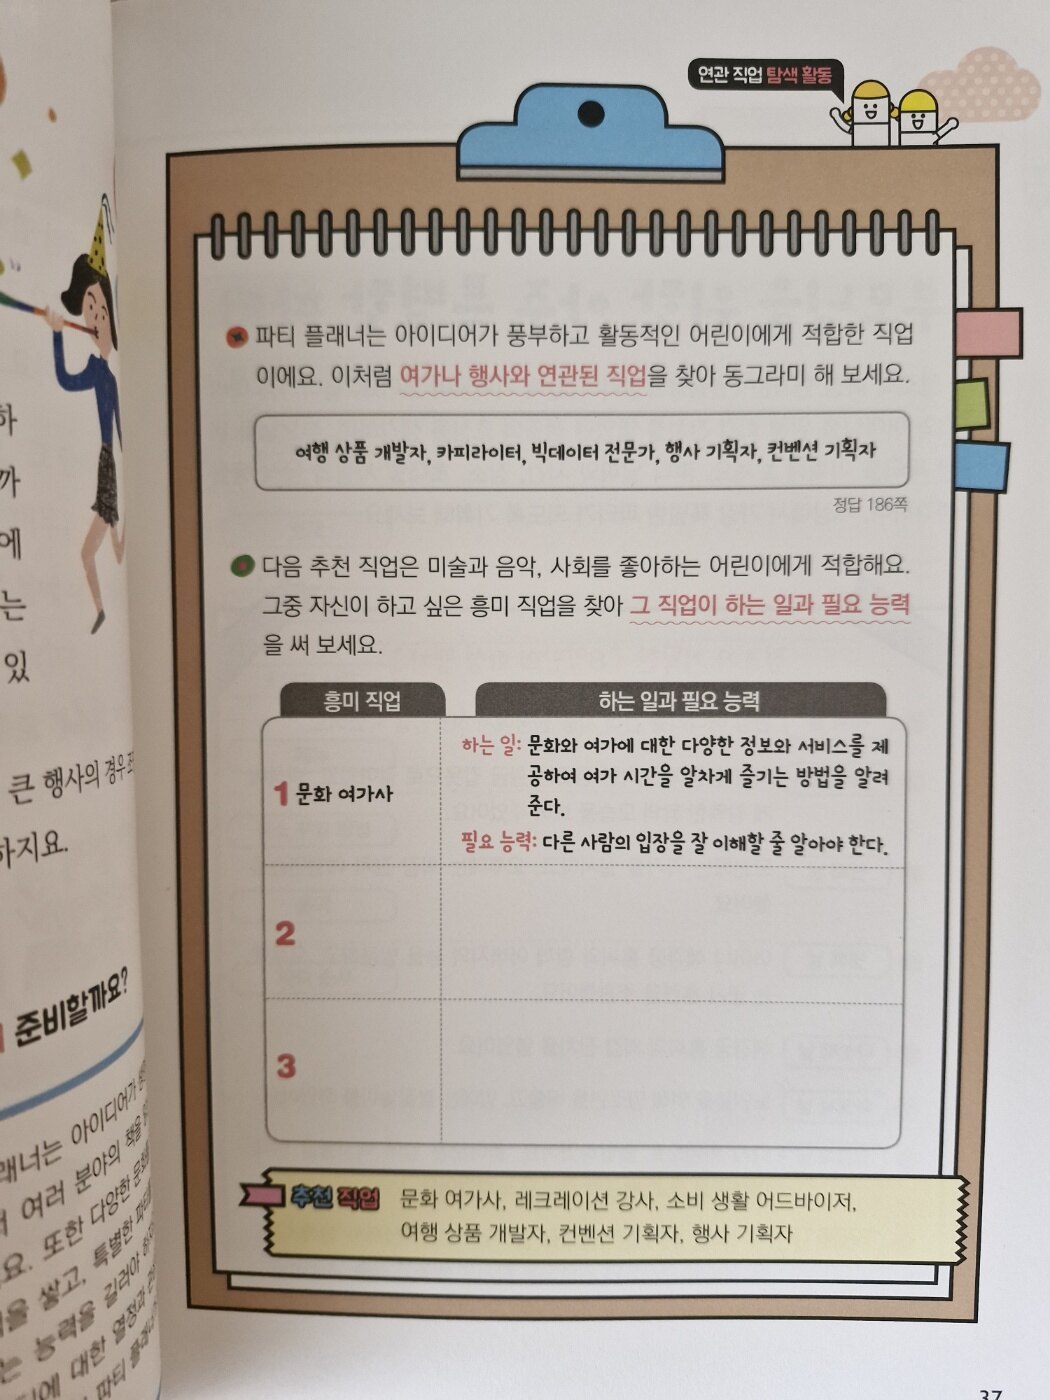 하
까
에
는
있
큰 행사의 경우
하지요.
준비할까요?
플래너는 아이디어가
여러 분야의 책을
요. 또한 다양한 문화
을 쌓고, 특별한 파티를
는 능력을 길러야 하
에 대한 열정과
파티 플래너
연관 직업 탐색 활동
파티 플래너는 아이디어가 풍부하고 활동적인 어린이에게 적합한 직업
이에요. 이처럼 여가나 행사와 연관된 직업을 찾아 동그라미 해 보세요.
여행 상품 개발자, 카피라이터, 빅데이터 전문가, 행사 기획자, 컨벤션 기획자
정답 186쪽
다음 추천 직업은 미술과 음악, 사회를 좋아하는 어린이에게 적합해요.
그중 자신이 하고 싶은 흥미 직업을 찾아 그 직업이 하는 일과 필요 능력
을 써 보세요.
흥미 직업
하는 일과 필요 능력
1 문화 여가사
하는 일: 문화와 여가에 대한 다양한 정보와 서비스를 제
공하여 여가 시간을 알차게 즐기는 방법을 알려
준다.
필요 능력: 다른 사람의 입장을 잘 이해할 줄 알아야 한다.
2
3
추천 직업 문화 여가사, 레크레이션 강사, 소비 생활 어드바이저,
여행 상품 개발자, 컨벤션 기획자, 행사 기획자
37